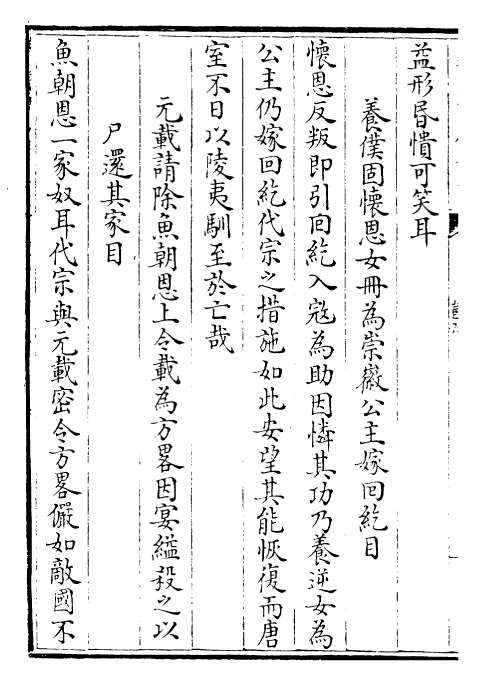 益形昏憒可笑耳
養僕固懷恩女冊為崇徽公主嫁回紇目
懷恩反叛即引回紇入寇為助因憐其功乃養逆女為
公主仍嫁回紇代宗之措施如此安望其能恢復而唐
室不日以陵夷馴至於亡哉
元載請除魚朝恩上令載為方畧因宴縊殺之以
尸還其家目
魚朝恩一家奴耳代宗與元載密令方畧儼如敵國不